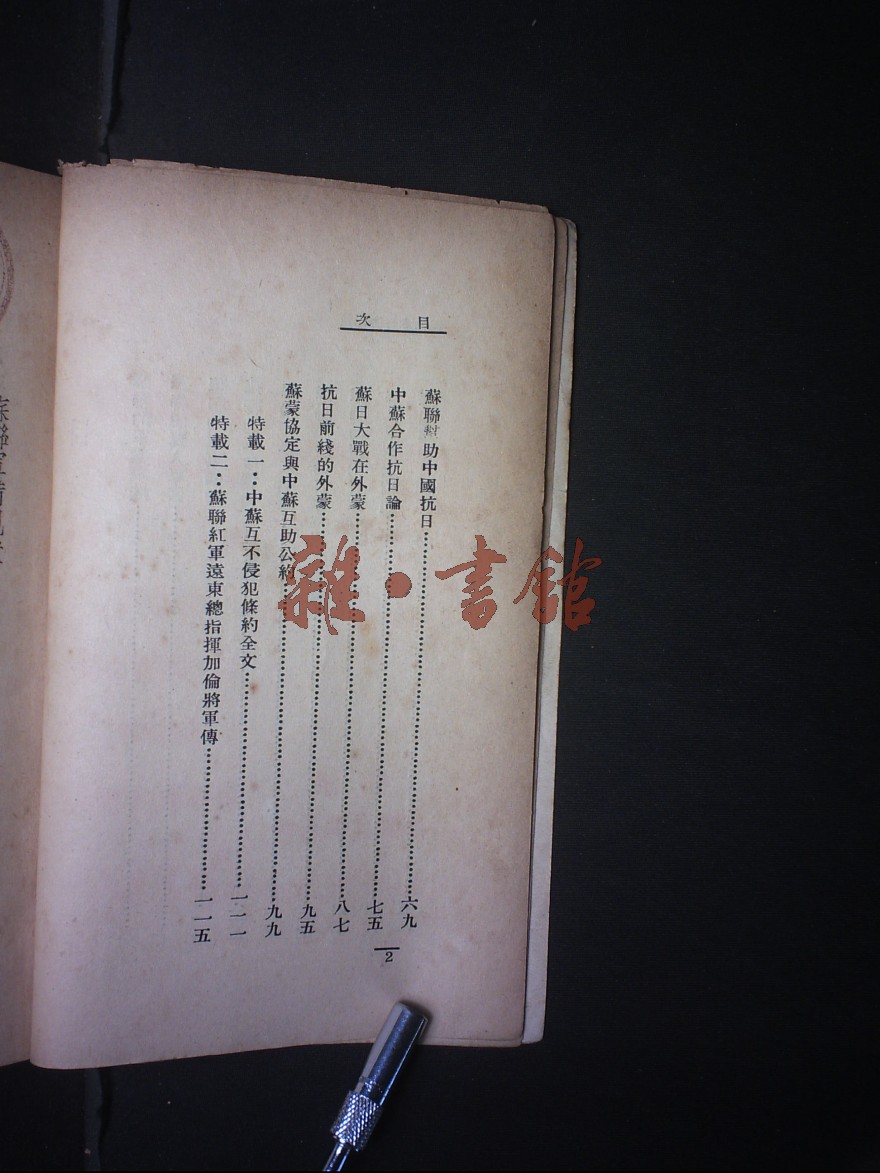 目次
蘇聯幫助中國抗日……六九
中蘇合作抗日論……七五
蘇日大戰在外蒙……八七
抗日前綫的外蒙……九五
蘇蒙協定與中蘇互助公約……九九
特載一：中蘇互不侵犯條約全文……一一一
特載二：蘇聯紅軍遠東總指揮加倫將軍傳……一一五
2
雜·書館